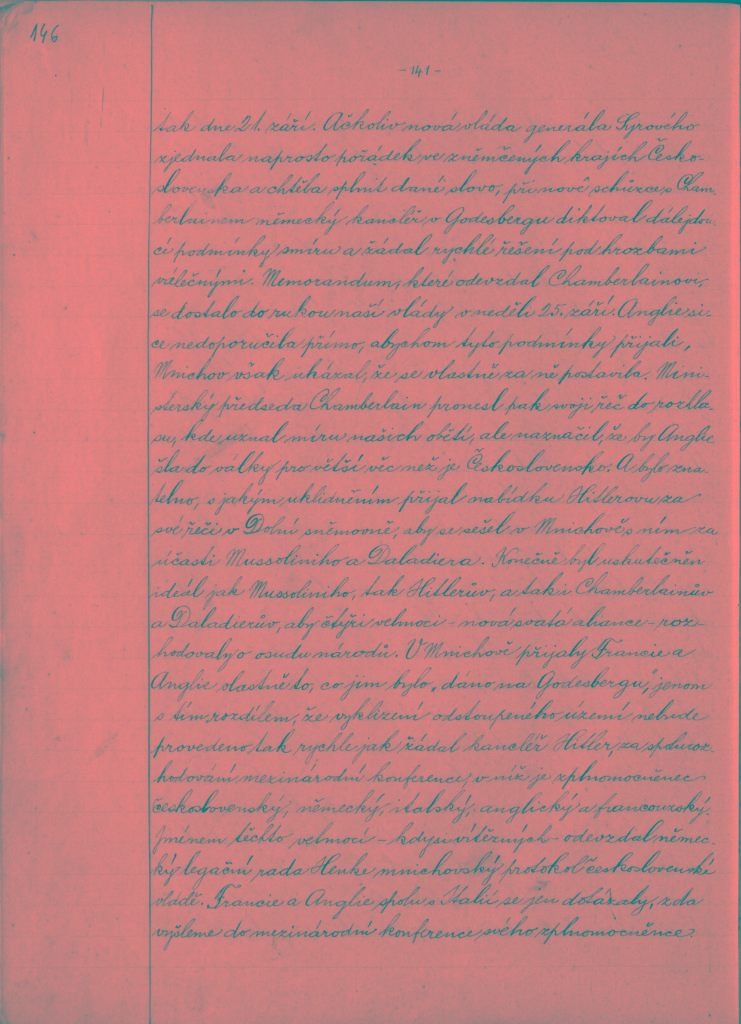 146
- 141 -
tak dne 21. září. Ačkoliv nová vláda generála Syrového
zjednala naprosto pořádek ve zněmčených krajích Česko-
slovenska a chtěla splnit dané slovo, při nové schůzce s Cham-
berlainem německý kancléř v Godesbergu diktoval dálejdou-
cí podmínky smíru a žádal rychlé řešení pod hrozbami
válečnými. Memorandum, které odevzdal Chamberlainovi,
se dostalo do rukou naší vlády v neděli 25. září. Anglie si-
ce nedoporučila přímo, abychom tyto podmínky přijali,
Mnichov však ukázal, že se vlastně za ně postavila. Mini-
sterský předseda Chamberlain pronesl pak svoji řeč do rozhla-
su, kde uznal míru našich obětí, ale naznačil, že by Anglie
šla do války pro větší věc než je Československo. A bylo zna-
telno, s jakým uklidněním přijal nabídku Hitlerovu za
své řeči v Dolní sněmovně, aby se sešel v Mnichově s ním za
účasti Mussoliniho a Daladiera. Konečně byl uskutečněn
ideál jak Mussoliniho, tak Hitlerův, a tak i Chamberlainův
a Daladierův, aby čtyři velmoci - nová svatá aliance - roz-
hodovaly o osudu národů. V Mnichově přijaly Francie a
Anglie vlastně to, co jim bylo „dáno na Godesbergu", jenom
s tím rozdílem, že vyklizení odstoupeného území nebude
provedeno tak rychle jak žádal kancléř Hitler, za spoluroz-
hodování mezinárodní konference, v níž je zplnomocněnec
československý, německý, italský, anglický a francouzský.
Jménem těchto velmocí - kdysi vítězných - odevzdal němec-
ký legační rada Henke mnichovský protokol československé
vládě. Francie a Anglie spolu s Italií se jen dotázaly, zda
vyšleme do mezinárodní konference svého zplnomocněnce.